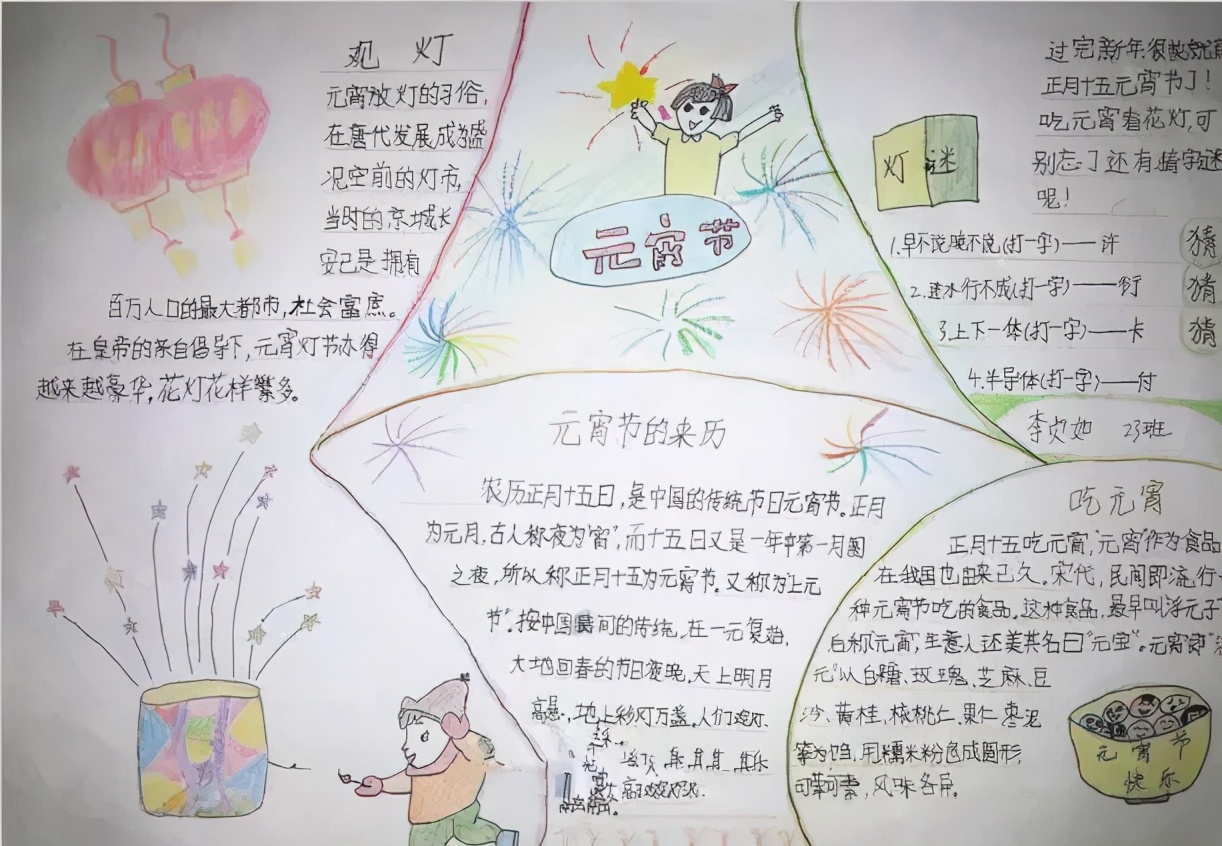 观 灯
元宵放灯的习俗,
在唐代发展成为盛
况空前的灯市,
当时的京城长
安已是拥有
百万人口的最大都市,社会富庶。
在皇帝的亲自倡导下,元宵灯节亦得
越来越豪华,花灯花样繁多。
元宵节
灯 谜
过完新年很快就
正月十五元宵节了!
吃元宵看花灯,可
别忘了还有猜字谜
呢!
1.早不说晚不说(打一字)——许
猜
2.进水行不成(打一字)——衍
猜
3.上下一体(打一字)——卡
猜
4.半导体(打一字)——付
23班
元宵节的来历
农历正月十五日,是中国的传统节日元宵节。正月
为元月,古人称夜为"宵",而十五日又是一年中第一月圆
之夜,所以称正月十五为元宵节。又称为"上元
节"。按中国民间的传统,在一元复始,
大地回春的节日夜晚,天上明月
高悬,地上彩灯万盏,人们
吃元宵
正月十五吃元宵,"元宵"作为食品
在我国也由来已久。宋代,民间即流行
种元宵节吃的食品。这种食品,最早叫浮元子
后称"元宵",生意人还美其名曰"元宝"。元宵即"
元"以白糖、玫瑰、芝麻、豆
沙、黄桂、核桃仁、果仁、枣泥
等为馅,用糯米粉包成圆形,
可荤可素,风味各异。
元宵节
快乐